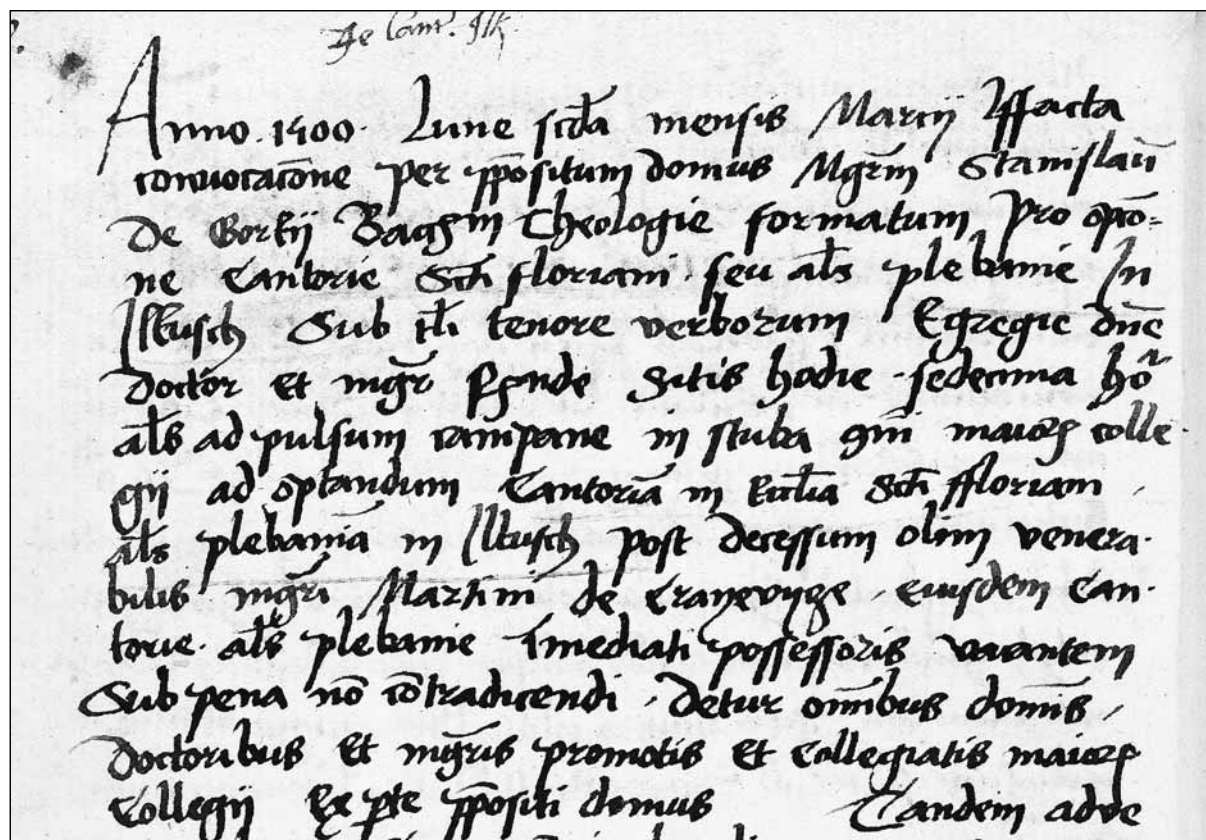 De Cant. Ilk.
Anno 1500 Lune scđa mensis Marcij Iffacta
convocacōne per p̄positum domus Mgr̄m Stanislaū
De Gorkij Baccm Theologie formatum pro opcō-
ne Cantorie Scti floriani seu als plebanie In
Ilkusch Sub tli tenore verborum Egregie dn̄e
doctor Et mgr̄ Sitis hodie sedecima hor
als ad pulsum campane in stuba maior colle
gij ad optandum Cantoriā in Ecclia Scti ffloriani
als plebaniā in Ilkusch post decessum olim venera
bilis mgr̄i Martini de eiusdem Can
torie als plebanie īmediati possessoris vacantem
Sub pena nō cōtradicendi Detur om̄ibus domīs
Doctoribus Et mgr̄is promotis Et Collegiatis maior
Collegij Ex pte p̄positi domus Tandem adve